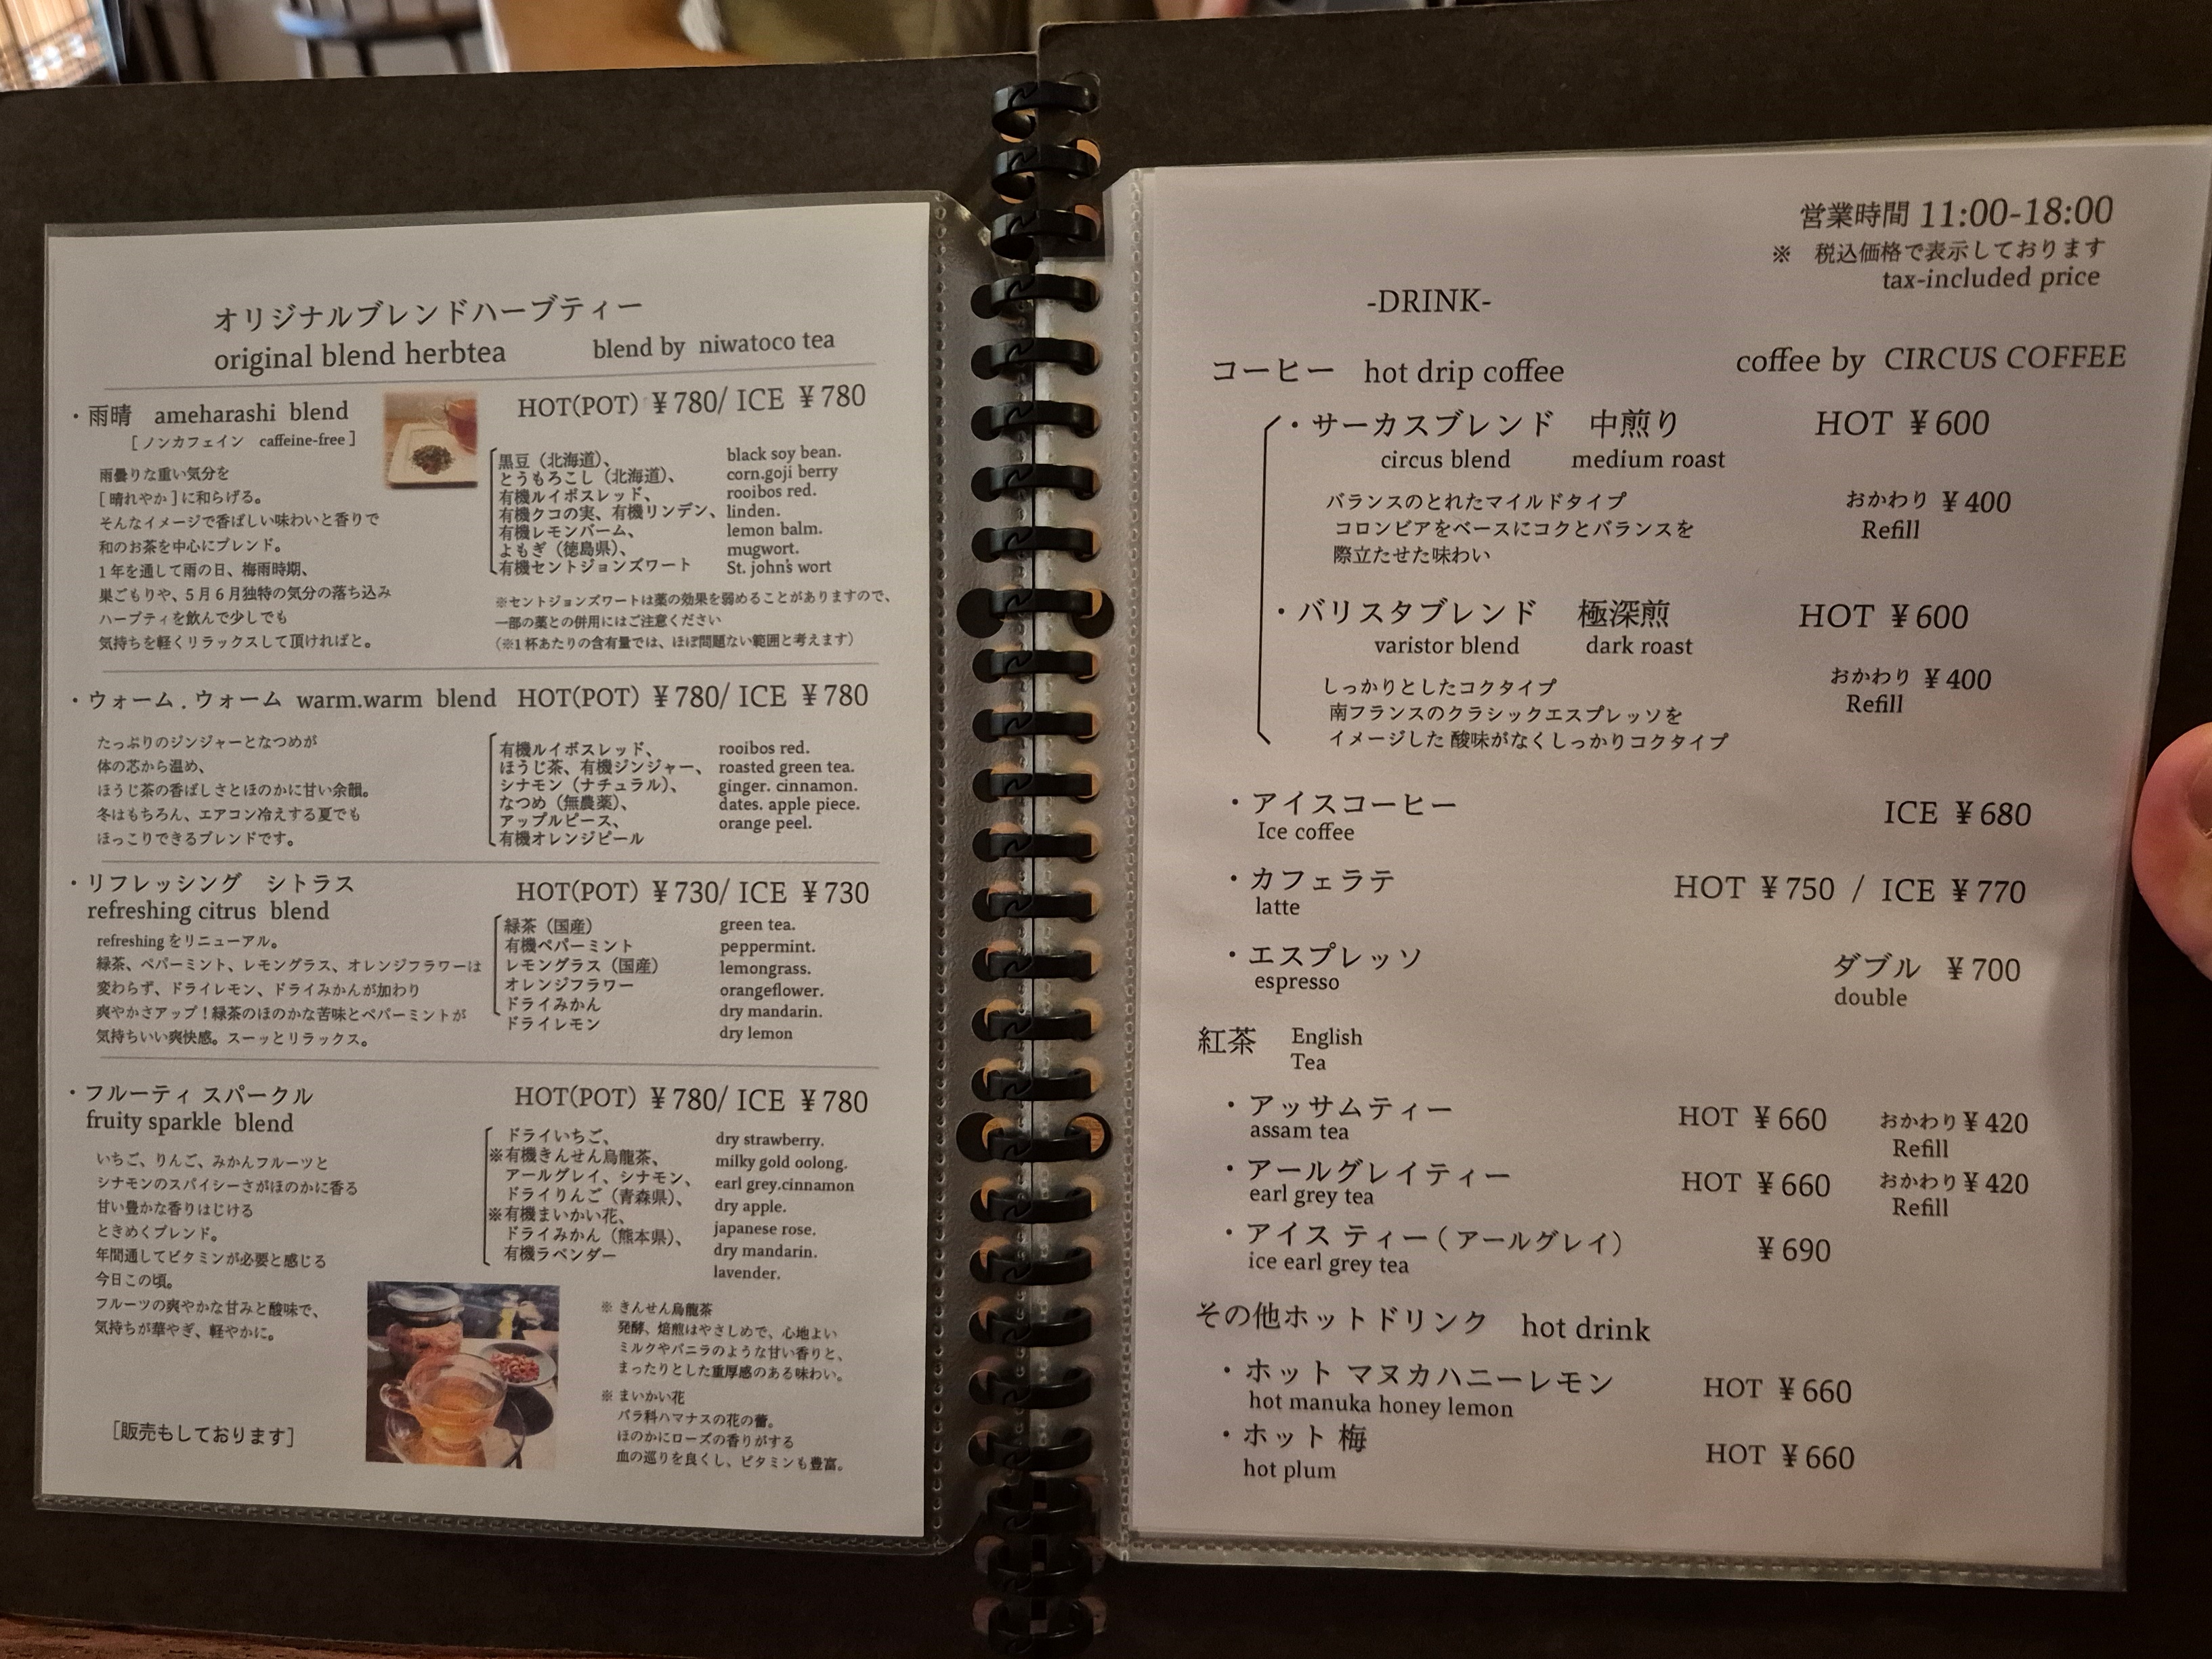 オリジナルブレンドハーブティー
original blend herbtea blend by niwatoco tea
・雨晴 ameharashi blend HOT(POT) ¥780/ ICE ¥780
[ ノンカフェイン caffeine-free ]
雨曇りな重い気分を
[ 晴れやか ] に和らげる。
そんなイメージで香ばしい味わいと香りで
和のお茶を中心にブレンド。
1 年を通して雨の日、梅雨時期、
巣ごもりや、5 月 6 月独特の気分の落ち込み
ハーブティを飲んで少しでも
気持ちを軽くリラックスして頂ければと。
黒豆（北海道）、
とうもろこし（北海道）、
有機ルイボスレッド、
有機クコの実、有機リンデン、
有機レモンバーム、
よもぎ（徳島県）、
有機セントジョンズワート
black soy bean.
corn.goji berry
rooibos red.
linden.
lemon balm.
mugwort.
St. john's wort
※セントジョンズワートは薬の効果を弱めることがありますので、
一部の薬との併用にはご注意ください
（※1 杯あたりの含有量では、ほぼ問題ない範囲と考えます）
・ウォーム . ウォーム warm.warm blend HOT(POT) ¥780/ ICE ¥780
たっぷりのジンジャーとなつめが
体の芯から温め、
ほうじ茶の香ばしさとほのかに甘い余韻。
冬はもちろん、エアコン冷えする夏でも
ほっこりできるブレンドです。
有機ルイボスレッド、
ほうじ茶、有機ジンジャー、
シナモン（ナチュラル）、
なつめ（無農薬）、
アップルピース、
有機オレンジピール
rooibos red.
roasted green tea.
ginger. cinnamon.
dates. apple piece.
orange peel.
・リフレッシング シトラス HOT(POT) ¥730/ ICE ¥730
refreshing citrus blend
refreshing をリニューアル。
緑茶、ペパーミント、レモングラス、オレンジフラワーは
変わらず、ドライレモン、ドライみかんが加わり
爽やかさアップ！緑茶のほのかな苦味とペパーミントが
気持ちいい爽快感。スーッとリラックス。
緑茶（国産）
有機ペパーミント
レモングラス（国産）
オレンジフラワー
ドライみかん
ドライレモン
green tea.
peppermint.
lemongrass.
orangeflower.
dry mandarin.
dry lemon
・フルーティ スパークル HOT(POT) ¥780/ ICE ¥780
fruity sparkle blend
いちご、りんご、みかんフルーツと
シナモンのスパイシーさがほのかに香る
甘い豊かな香りはじける
ときめくブレンド。
年間通してビタミンが必要と感じる
今日この頃。
フルーツの爽やかな甘みと酸味で、
気持ちが華やぎ、軽やかに。
ドライいちご、
※有機きんせん烏龍茶、
アールグレイ、シナモン、
ドライりんご（青森県）、
※有機まいかい花、
ドライみかん（熊本県）、
有機ラベンダー
dry strawberry.
milky gold oolong.
earl grey.cinnamon
dry apple.
japanese rose.
dry mandarin.
lavender.
※ きんせん烏龍茶
発酵、焙煎はやさしめで、心地よい
ミルクやバニラのような甘い香りと、
まったりとした重厚感のある味わい。
※ まいかい花
バラ科ハマナスの花の蕾。
ほのかにローズの香りがする
血の巡りを良くし、ビタミンも豊富。
[販売もしております]
営業時間 11:00-18:00
※ 税込価格で表示しております
tax-included price
-DRINK-
コーヒー hot drip coffee coffee by CIRCUS COFFEE
・サーカスブレンド 中煎り HOT ¥600
circus blend medium roast
バランスのとれたマイルドタイプ
コロンビアをベースにコクとバランスを
際立たせた味わい
おかわり ¥400
Refill
・バリスタブレンド 極深煎 HOT ¥600
varistor blend dark roast
おかわり ¥400
Refill
しっかりとしたコクタイプ
南フランスのクラシックエスプレッソを
イメージした 酸味がなくしっかりコクタイプ
・アイスコーヒー ICE ¥680
Ice coffee
・カフェラテ HOT ¥750 / ICE ¥770
latte
・エスプレッソ ダブル ¥700
espresso double
紅茶 English
Tea
・アッサムティー HOT ¥660 おかわり¥420
assam tea Refill
・アールグレイティー HOT ¥660 おかわり¥420
earl grey tea Refill
・アイス ティー ( アールグレイ） ¥690
ice earl grey tea
その他ホットドリンク hot drink
・ホット マヌカハニーレモン HOT ¥660
hot manuka honey lemon
・ホット 梅 HOT ¥660
hot plum